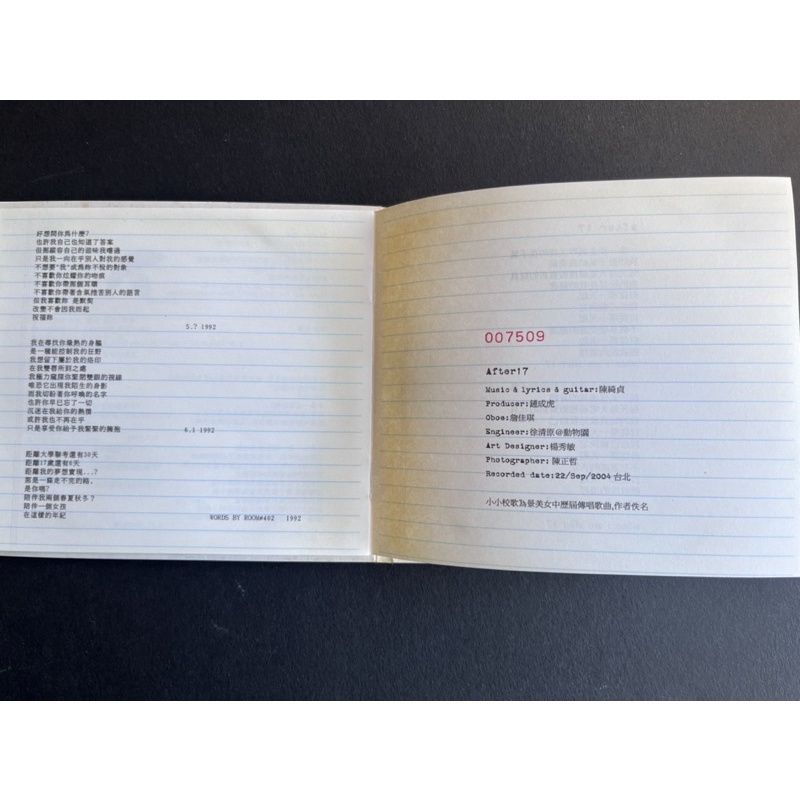 好想問你為什麼?
也許我自己也知道了答案
但那縱容自己的滋味我嚐過
只是我一向在乎別人對我的感覺
不想要"我"成為昨不悅的對象
不喜歡你炫耀你的吻痕
不喜歡你帶那個耳環
不喜歡你帶著含氣挖苦別人的語言
但我喜歡昨 是默契
改變不會因我而起
祝福昨
5.7 1992
我在尋找你熾熱的身軀
是一種能控制我的狂野
我想留下屬於我的烙印
在我雙唇所到之處
我極力窺探你緊閉雙眼的視線
唯恐它出現我陌生的身影
而我切盼著你呼喚的名字
也許你早已忘了一切
沉迷在我給你的熱情
或許我也不再在乎
只是享受你給予我緊緊的擁抱
4.1 1992
距離大學聯考還有30天
距離17歲還有0天
距離我的夢想實現...?
那是一條走不完的路.
是你嗎?
陪伴我兩個春夏秋冬?
陪伴一個女孩
在這樣的年紀
WORDS BY ROOM#402 1992
007509
After17
Music & lyrics & guitar:陳綺貞
Producer:鍾成虎
Oboe:詹佳琪
Engineer:徐清原@動物園
Art Designer:楊秀敏
Photographer:陳正哲
Recorded date:22/Sep/2004 台北
小小校歌為景美女中歷屆傳唱歌曲,作者佚名